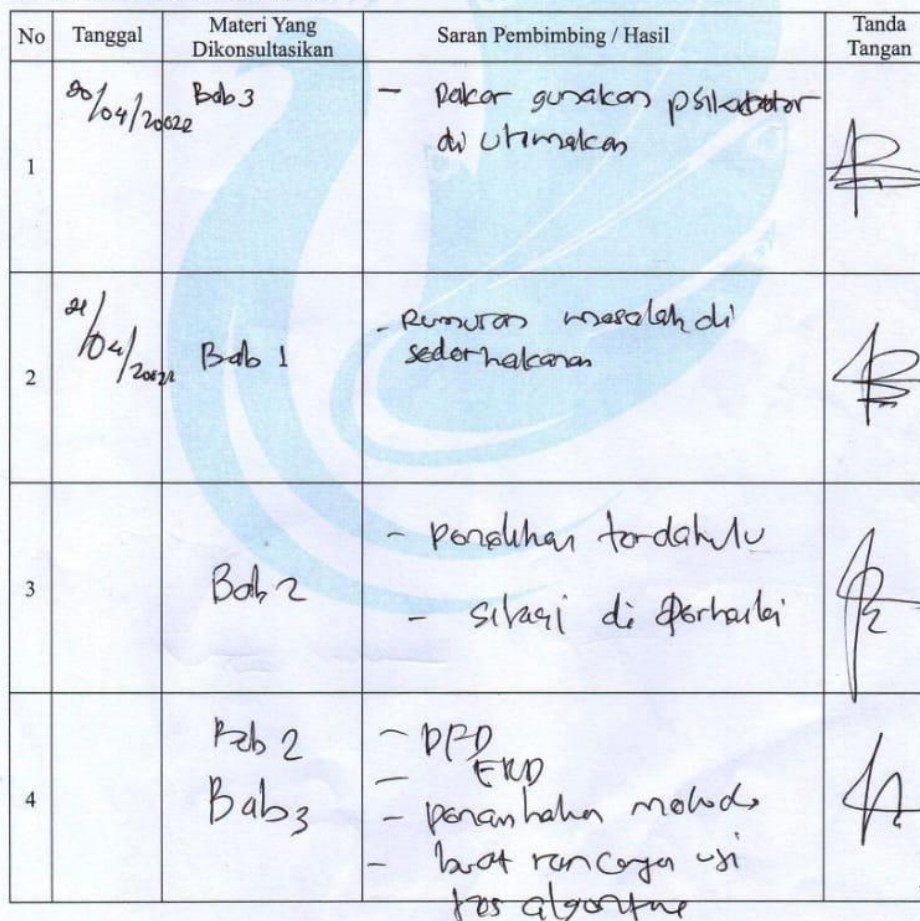 No Tanggal Materi Yang Dikonsultasikan Saran Pembimbing / Hasil Tanda Tangan
1 20/04/20022 Bab 3 - Pakar gunakan
di utamakan
2 21/04/2022 Bab 1 - Rumusan masalah di
sederhanakan
3 Bab 2 - penelitian terdahulu
- sitasi di perbaiki
4 Bab 2 - DFD
Bab 3 - ERD
- penambahan metode
- buat rancangan uji
tes algoritma